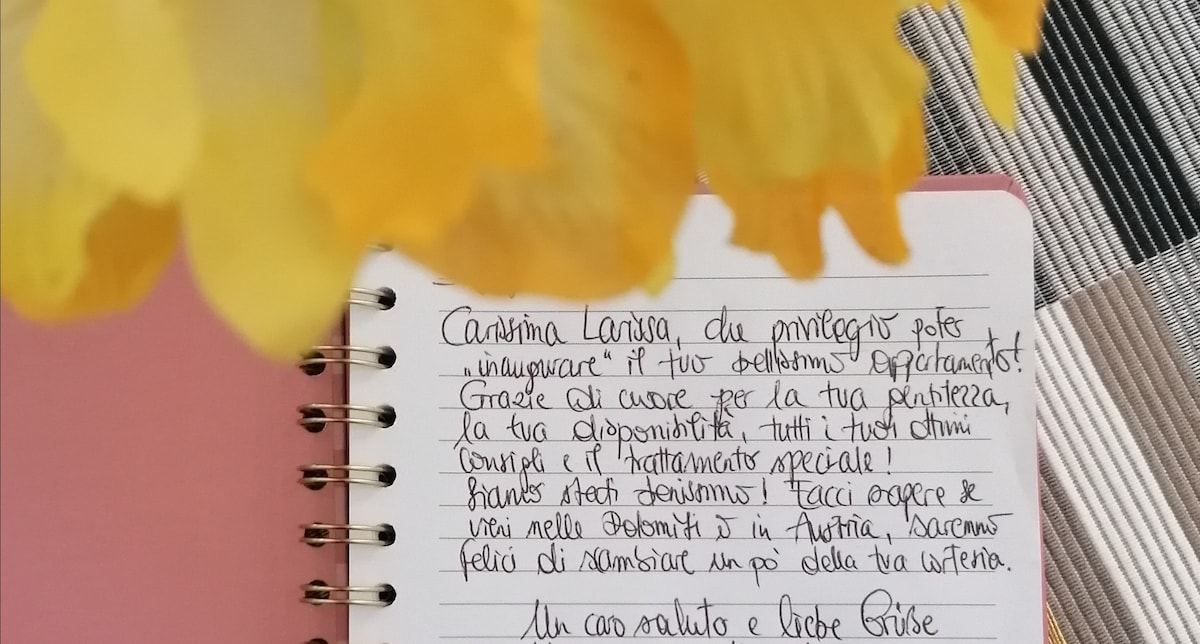 Carissima Larissa, che privilegio poter
„inaugurare“ il tuo bellissimo appartamento!
Grazie di cuore per la tua gentilezza,
la tua disponibilità, tutti i tuoi ottimi
consigli e il trattamento speciale!
Siamo stati benissimo! Facci sapere se
vieni nelle Dolomiti o in Austria, saremmo
felici di scambiare un po' della tua cortesia.
Un caro saluto e liebe Grüße